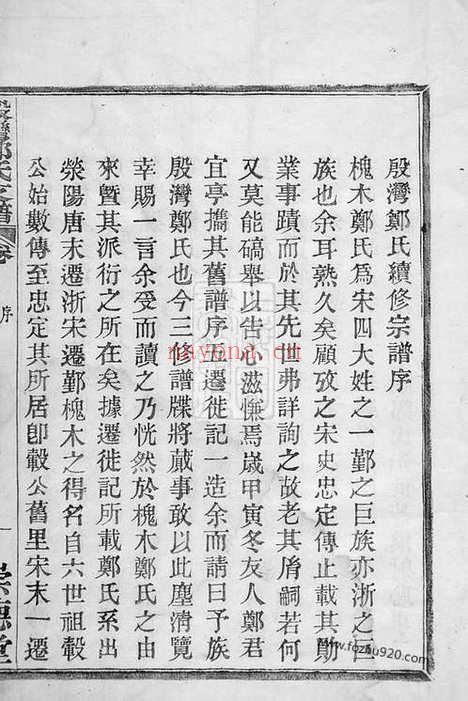 殷灣鄭氏續修宗譜序
槐木鄭氏爲宋四大姓之一鄞之巨族亦浙之巨
族也余耳熟久矣顧攷之宋史忠定傳止載其勳
業事蹟而於其先世弗詳詢之故老其胤嗣若何
又莫能碻舉以告心滋慊焉歲甲寅冬友人鄭君
宜亭攜其舊譜序五遷徙記一造余而請曰予族
殷灣鄭氏也今三修譜牒將蕆事敢以此塵清覽
幸賜一言余受而讀之乃恍然於槐木鄭氏之由
來曁其派衍之所在矣據遷徙記所載鄭氏系出
滎陽唐末遷浙宋遷鄞槐木之得名自六世祖轂
公始數傳至忠定其所居卽轂公舊里宋末一遷
鄭氏宗譜
卷
序
一
崇德堂
nayong.cn
www.fozhu920.com